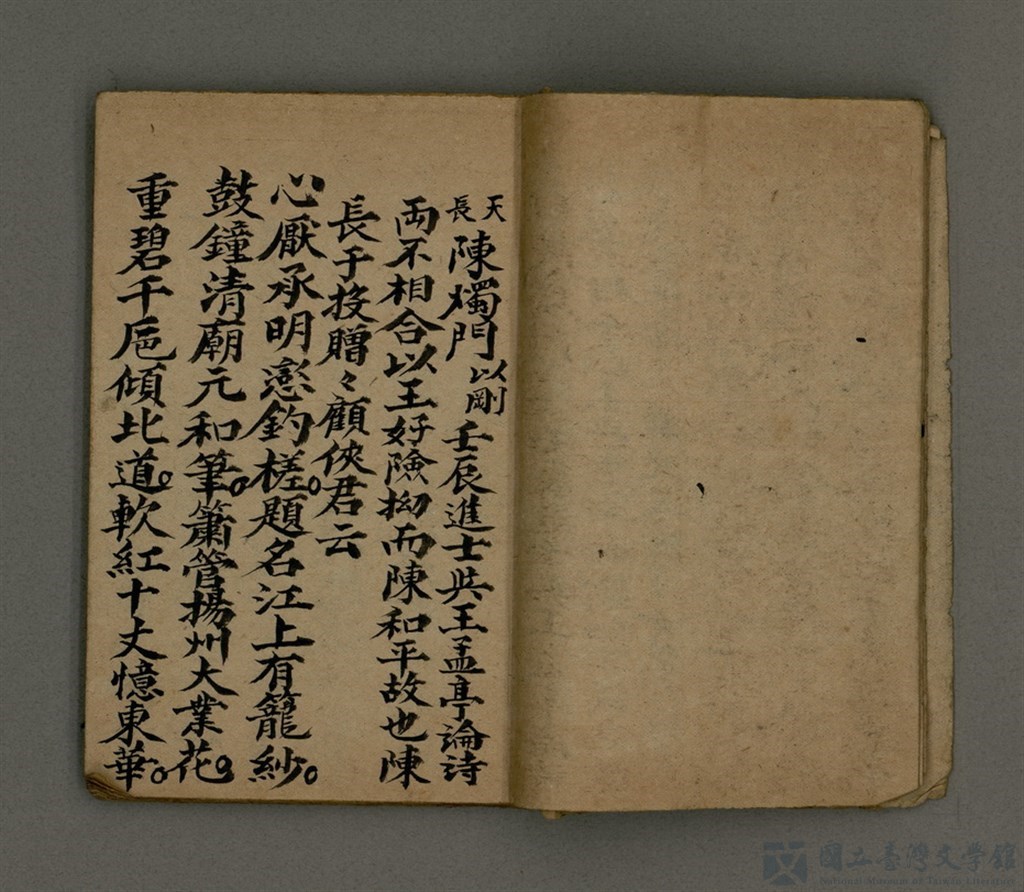 天長陳燭門以剛壬辰進士與王孟亭論詩
両不相合以王好險拗而陳和平故也陳
長于投贈々顧俠君云
心厭承明戀釣槎。題名江上有籠紗。
鼓鐘清廟元和筆。簫管揚州大業花。
重碧千巵傾北道。軟紅十丈憶東華。
國立臺灣文學館
National Museum of Taiwan Literature